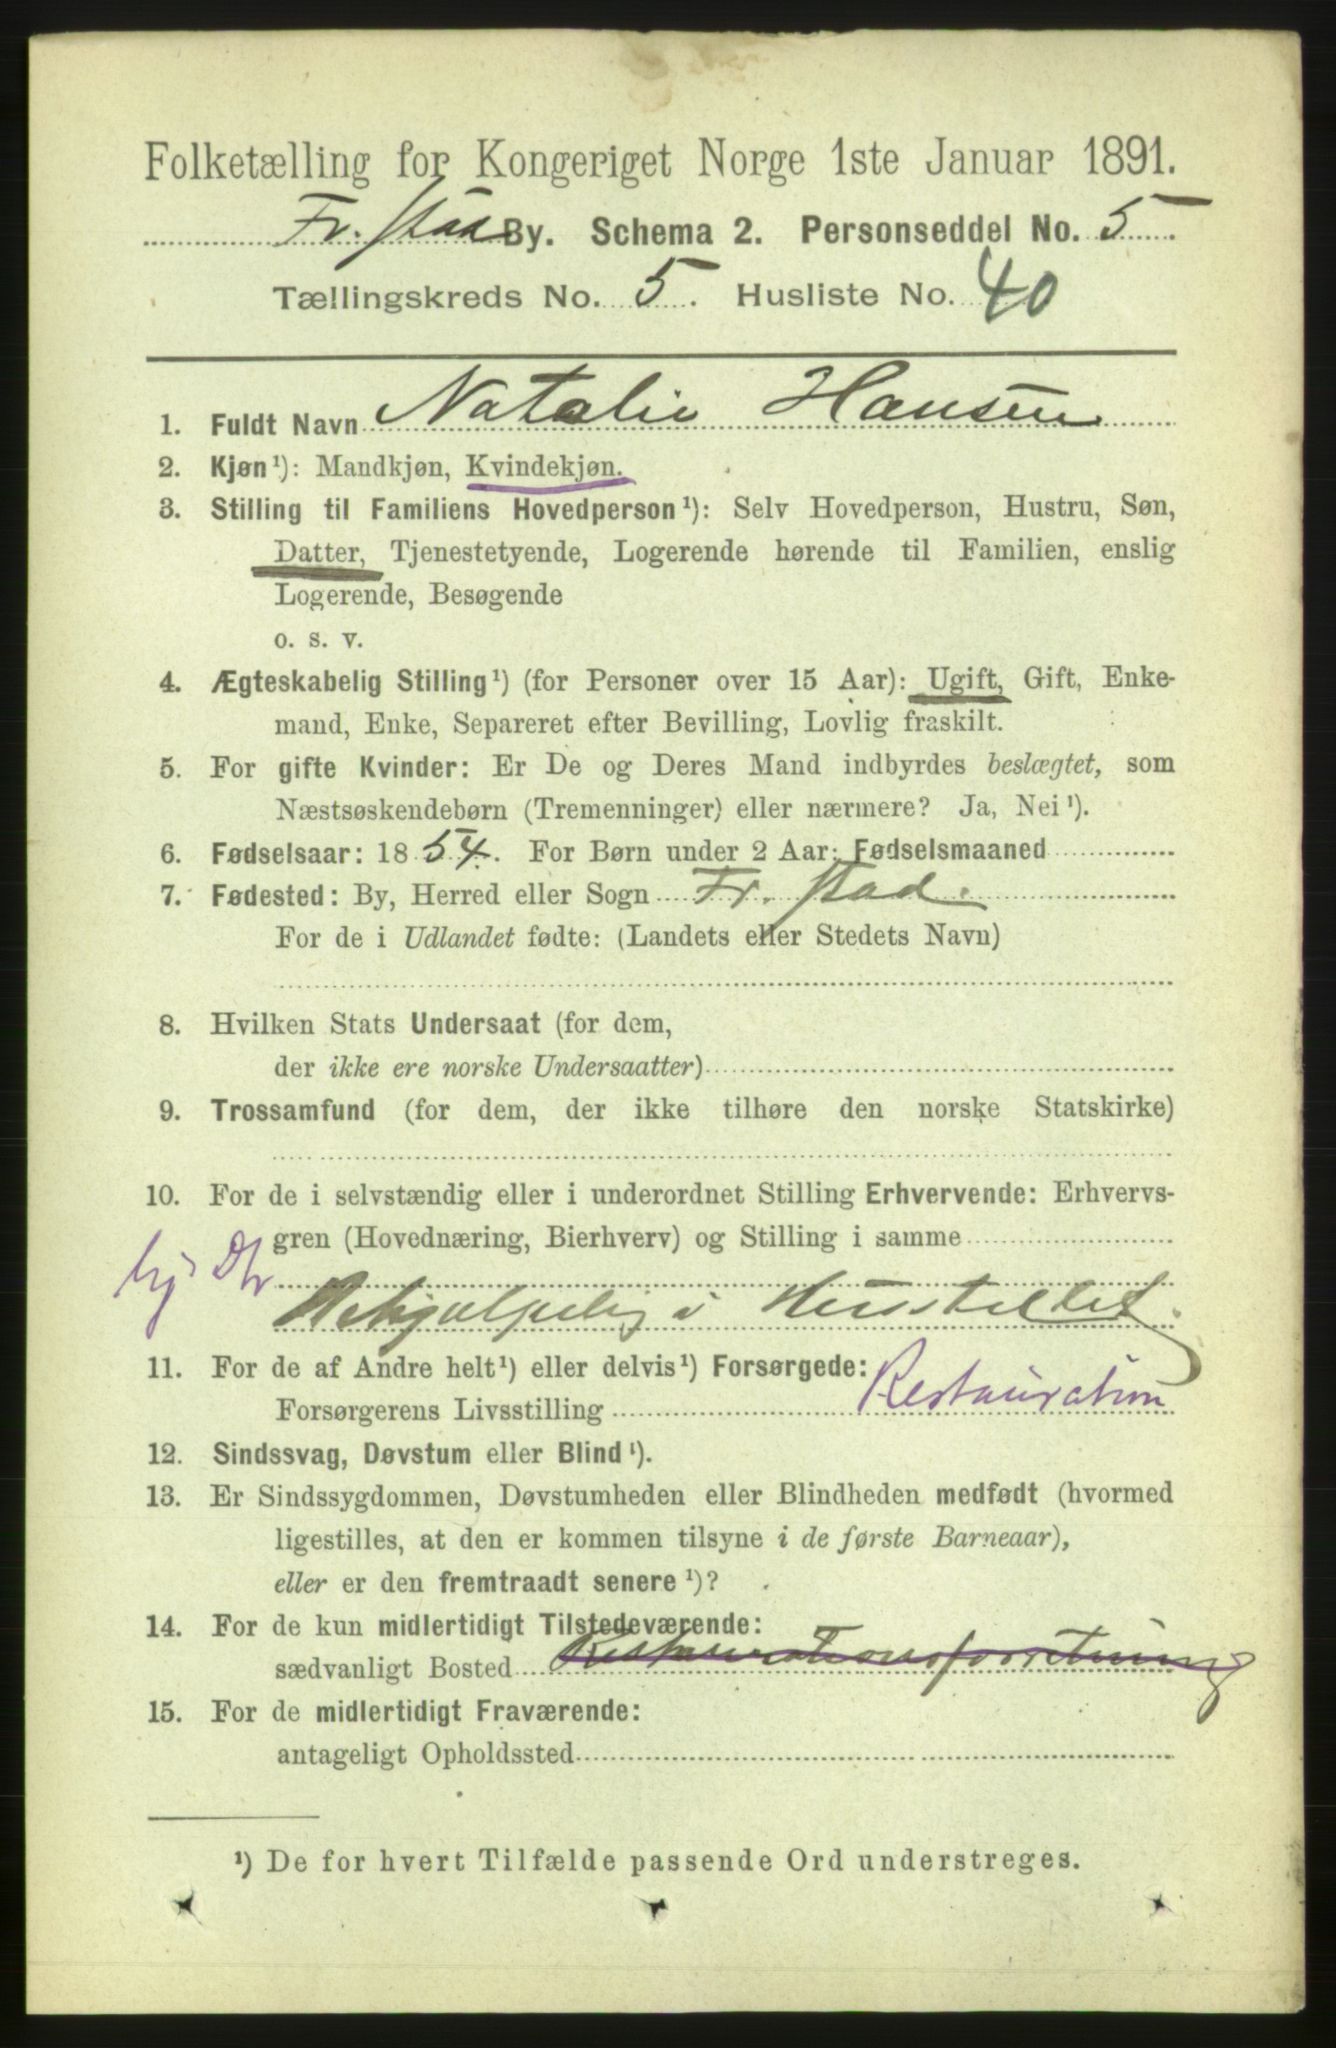 Folketælling for Kongeriget Norge 1ste Januar 1891.
Fr.stad By. Schema 2. Personseddel No. 5
Tællingskreds No. 5. Husliste No. 40
1. Fuldt Navn Natalie Hansen
2. Kjøn¹): Mandkjøn, Kvindekjøn.
3. Stilling til Familiens Hovedperson¹): Selv Hovedperson, Hustru, Søn,
Datter, Tjenestetyende, Logerende hørende til Familien, enslig
Logerende, Besøgende
o. s. v.
4. Ægteskabelig Stilling¹) (for Personer over 15 Aar): Ugift, Gift, Enke-
mand, Enke, Separeret efter Bevilling, Lovlig fraskilt.
5. For gifte Kvinder: Er De og Deres Mand indbyrdes beslægtet, som
Næstsøskendebørn (Tremenninger) eller nærmere? Ja, Nei¹).
6. Fødselsaar: 1854. For Børn under 2 Aar: Fødselsmaaned
7. Fødested: By, Herred eller Sogn Fr. stad.
For de i Udlandet fødte: (Landets eller Stedets Navn)
8. Hvilken Stats Undersaat (for dem,
der ikke ere norske Undersaatter)
9. Trossamfund (for dem, der ikke tilhøre den norske Statskirke)
10. For de i selvstændig eller i underordnet Stilling Erhvervende: Erhvervs-
gren (Hovednæring, Bierhverv) og Stilling i samme
hj Dtr
Behjælpelig i Husstellet.
11. For de af Andre helt¹) eller delvis¹) Forsørgede:
Forsørgerens Livsstilling Restauration
12. Sindssvag, Døvstum eller Blind¹).
13. Er Sindssygdommen, Døvstumheden eller Blindheden medfødt (hvormed
ligestilles, at den er kommen tilsyne i de første Barneaar),
eller er den fremtraadt senere¹)?
14. For de kun midlertidigt Tilstedeværende:
sædvanligt Bosted Restaurationsforretning
15. For de midlertidigt Fraværende:
antageligt Opholdssted
¹) De for hvert Tilfælde passende Ord understreges.